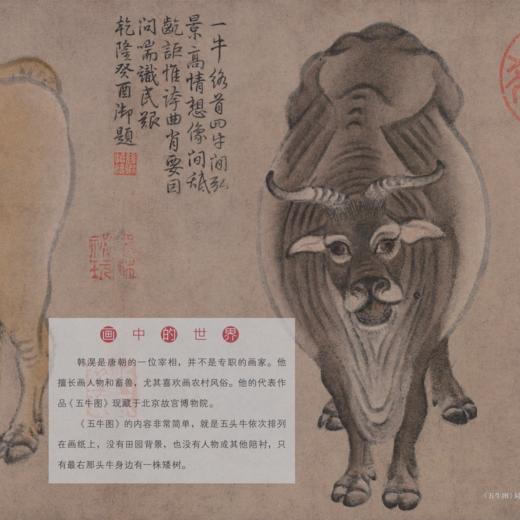 一牛络首四牛间弘
景高情想像间舐
龁讵惟夸曲肖要因
问喘识民艰
乾隆癸酉御题
画中的世界
韩滉是唐朝的一位宰相，并不是专职的画家。他
擅长画人物和畜兽，尤其喜欢画农村风俗。他的代表作
品《五牛图》现藏于北京故宫博物院。
《五牛图》的内容非常简单，就是五头牛依次排列
在画纸上，没有田园背景，也没有人物或其他陪衬，只
有最右那头牛身边有一株矮树。
《五牛图》